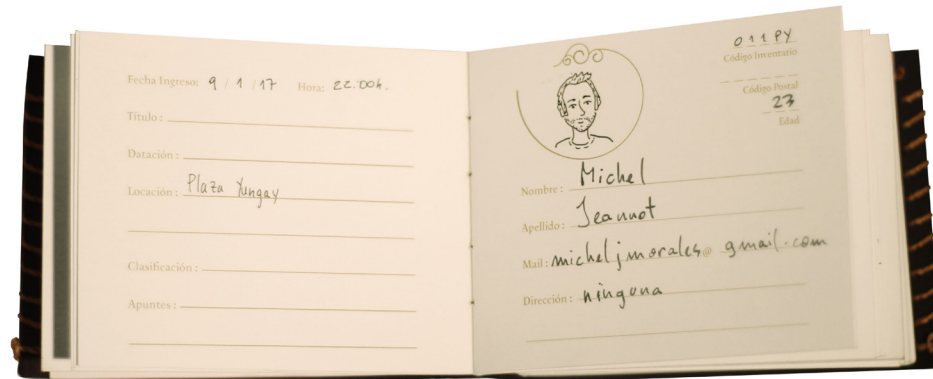 Fecha Ingreso: 9 / 1 / 17 Hora: 22:00h.
Título:
Datación:
Locación: Plaza Yungay
Clasificación:
Apuntes:
011PY
Código Inventario
Código Postal
23
Edad
Nombre: Michel
Apellido: Jeannot
Mail: micheljmorales@gmail.com
Dirección: ninguna